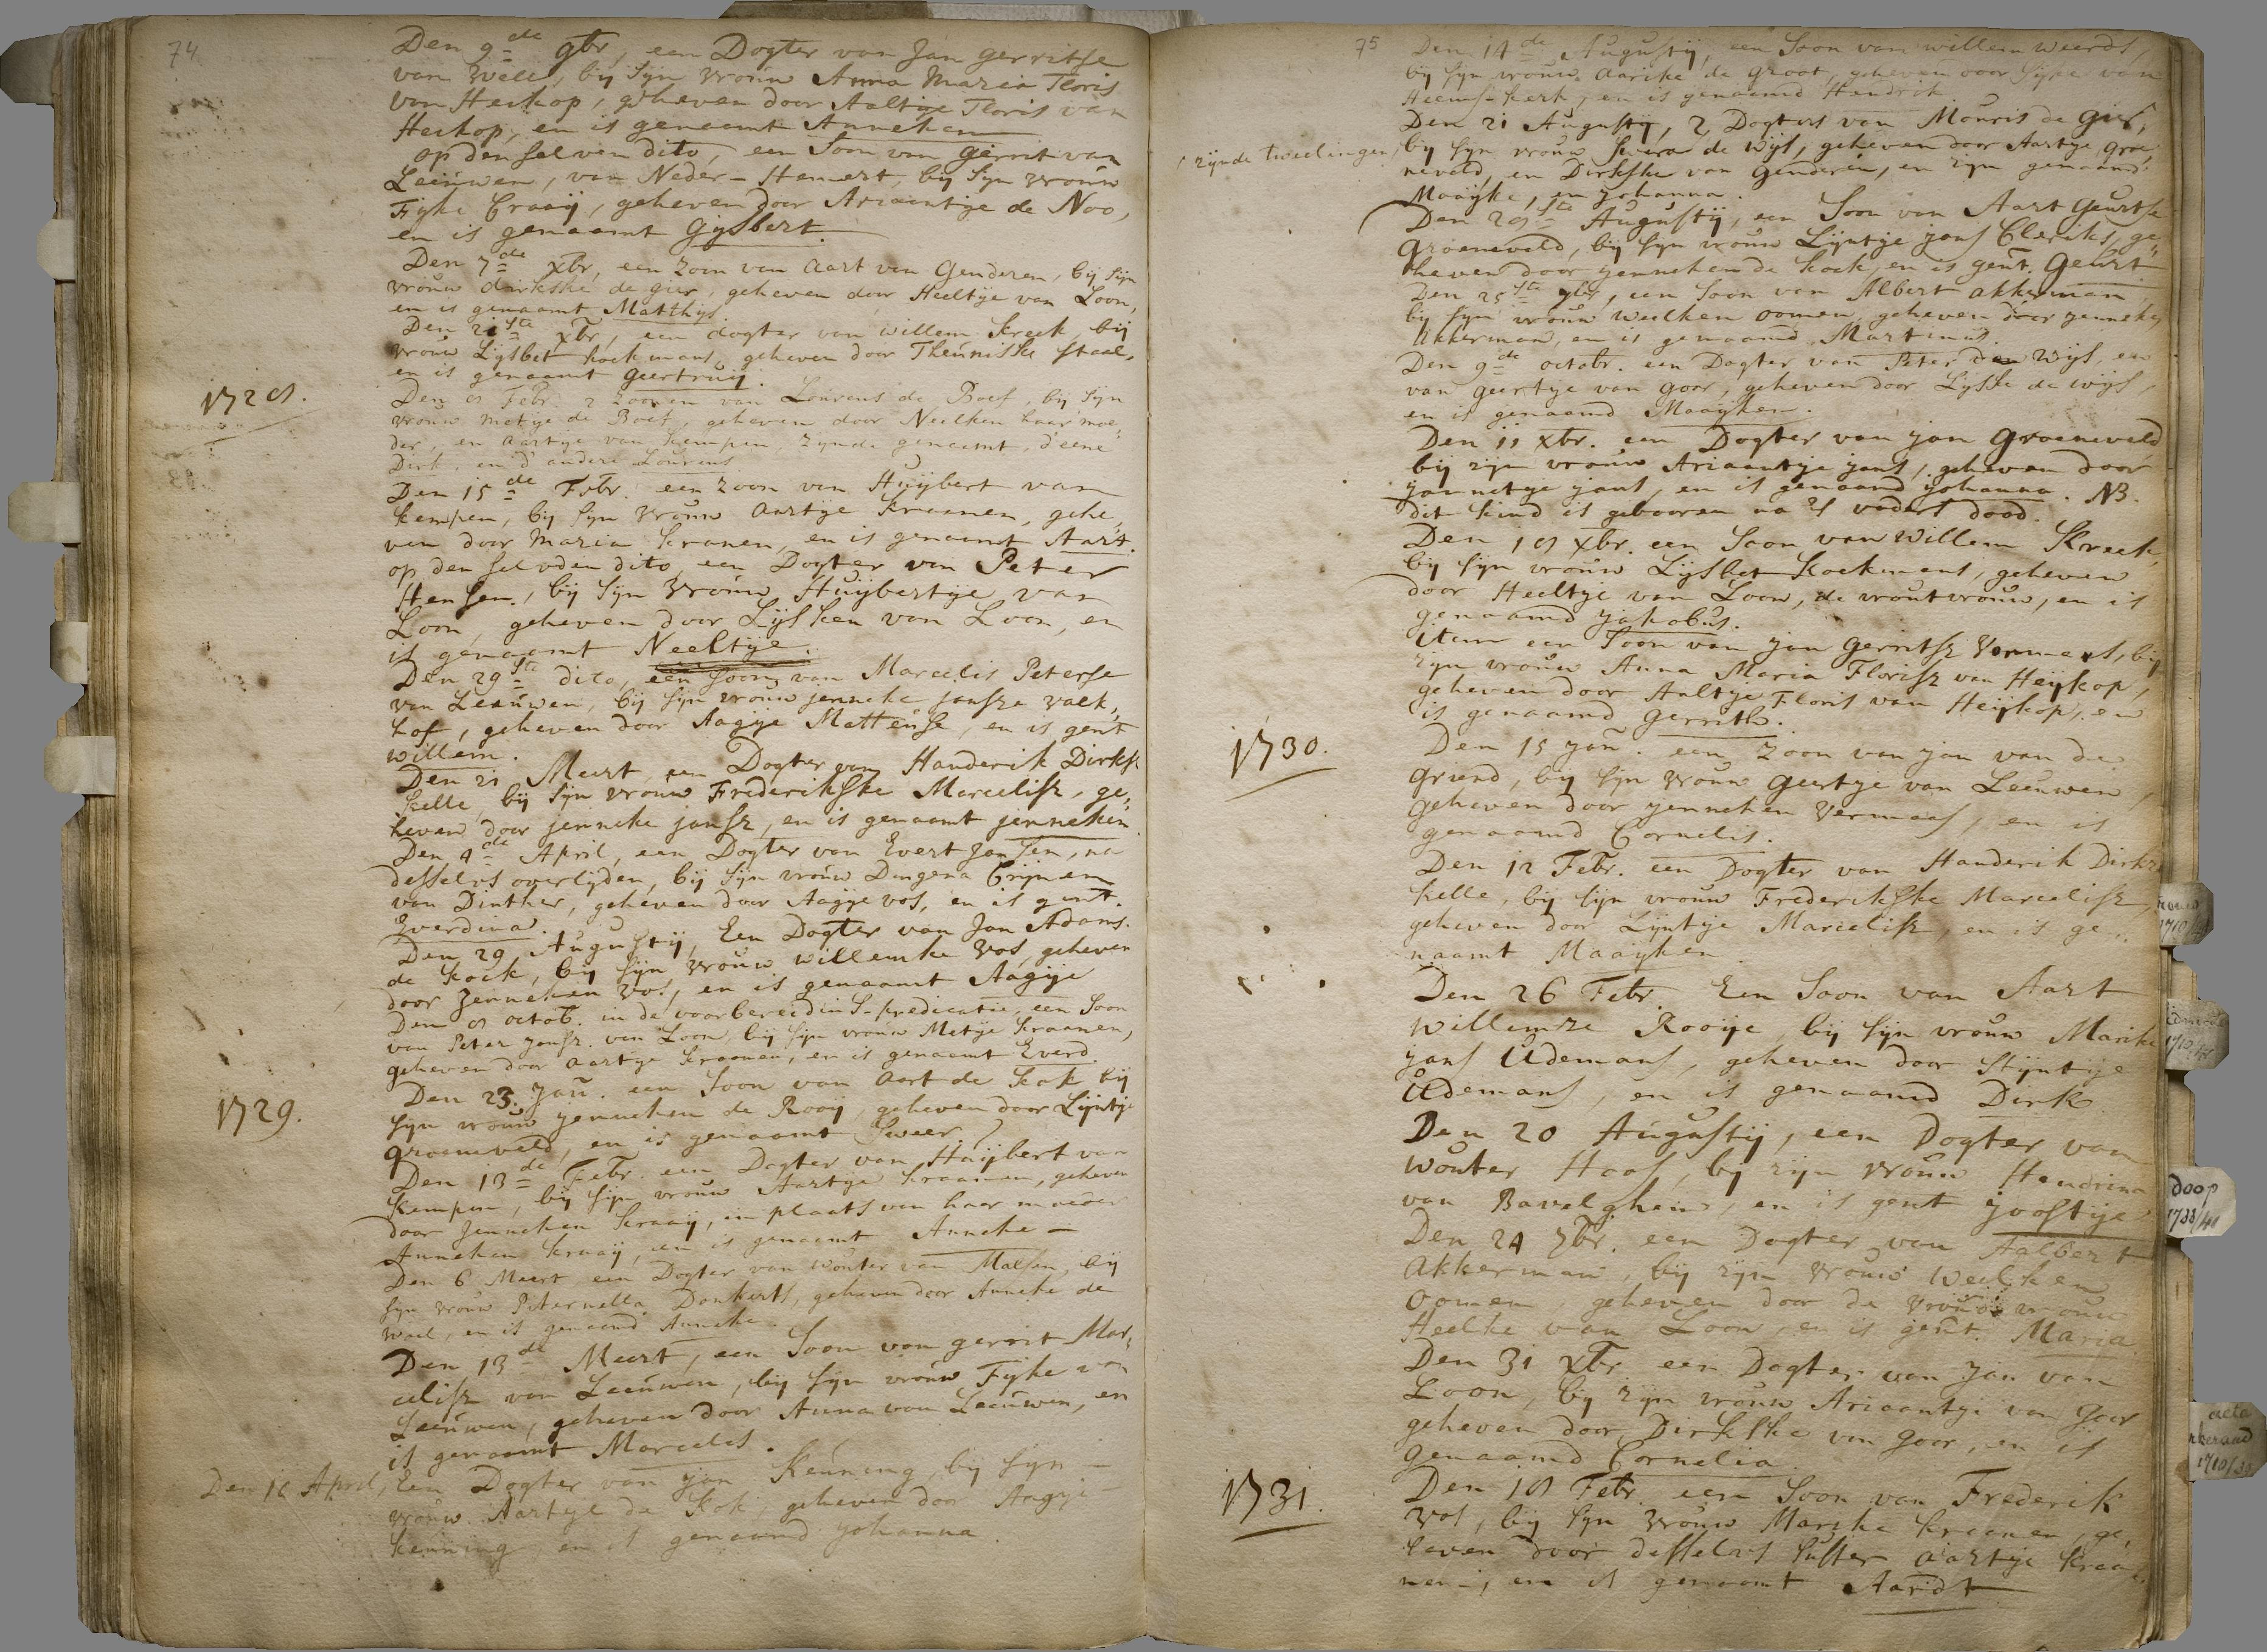 74
Den 9de 9br, een Dogter van Jan Gerritse
van Well, bij sijn vrouw Anna Maria Floris
van Heikop, geheven door Aaltge Floris van
Heikop, en is genaemt Anneken
op denselven dito, een Soon van Gerrit van
Leeuwen, van Neder-Hemert, bij sijn vrouw
Fijke Craaij, geheven door Ariaentije de Noo,
en is genaamt Gijsbert.
Den 7de xbr, een Zoon van Aart van Genderen, bij sijn
vrouw dirkske de gier, geheven door Heeltije van Loon,
en is genaamt Matthijs.
Den 21ste xbr, een dogter van willem Kreek, bij
vrouw Lijsbet koekmans, geheven door Theuniske staal,
en is genaamt geertruij.
1728.
Den 8 Febr. 2 Zoonen van Lourens de Boef, bij sijn
vrouw metje de Boef, geheven door Neelken haar moe,
der, en aartje van kempen, zijnde genaemt, d'eene
Dirk, en d'andere Lourens
Den 15de Febr. een zoon van Huijbert van
kempen, bij sijn vrouw aartije Kraanen, gehe,
ven door Maria kranen, en is genaemt Aart.
op denselvden dito, een Dogter van Peter
Hensen, bij sijn vrouw Huijbertije van
Loon, geheven door Lijsken van Loon, en
is genaamt Neeltije.
Den 29ste dito, een soon van Marcelis Peterse
van Leeuwen, bij sijn vrouw jenneke jansze valk,
hof, geheven door Aagje Matteuse, en is gent
willem.
Den 21 Meert, een Dogter van Handerik Dirkse
kelle, bij sijn vrouw Frederikske Marcelisz, ge,
heven door jenneke jansz, en is genaamt jenneken
Den 4de April, een Dogter van Evert Jansen, na
desselvs overlijden, bij sijn vrouw Dingena Crijnen
van Dinther, geheven door Aagje vos, en is gent.
Everdina.
Den 29 Augustij, Een Dogter van Jan Adams.
de kock, bij sijn vrouw willemke vos, geheven
door Jenneken vos, en is genaamt Aagije
Den 8 octob. in de voorbereidins-predicatie, een Soon
van Peter Jansz. van Loon, bij sijn vrouw Metje kraanen,
geheven door aartje kraanen, en is genaamt Everd.
1729.
Den 23. Jan. een Soon van Aart de kok, bij
sijn vrouw jenneken de Rooij, geheven door Lijntje
groeneveld, en is genaamt Sweer
Den 13de Febr. een Dogter van Huijbert van
kempen, bij sijn vrouw Aartje kraanen, geheven
door Jenneken kraaij, in plaats van haar moeder
Anneken kraaij, en is genaemt Anneke -
Den 6 Meert, een Dogter van wouter van Malsen, bij
sijn vrouw Peternella Donkerts, geheven door Anneke de
waal, en is genaamd Anneke
Den 13de Meert, een Soon van gerrit Mar,
celisz van Leeuwen, bij sijn vrouw Fijke van
Leeuwen, geheven door Anna van Leeuwen, en
is genaamt Marcelis.
Den 16 April, Een Dogter van Jan Keuning, bij sijn -
vrouw Aartje de Kok, geheven door Angje
keuning, en is genaamd Johanna.
75
Den 14de Augustij, een Soon van willem weerds,
bij sijn vrouw aarike de groot, geheven door sijke van
Heemskerk, en is genaamd Handrik
Den 21 Augustij, 2 Dogters van Mouris de Gier,
, zijnde tweelingen, bij sijn vrouw de wijs, geheven door Aartje groe,
neveld, en Dirkske van Genderen, en zijn genaamd
Maaijke, en Johanna.
Den 29ste Augustij, een Soon van Aart Geurtse
groeneveld, bij sijn vrouw Lijntje jans Cleriks, ge,
heven door jenneken de kock, en is gent. Geurt
Den 25ste 7br, een Soon van Albert akkerman,
bij sijn vrouw weelken oomen, geheven door jenneke
Akkerman, en is genaamd Martinus.
Den 9de octobr. een Dogter van Peter den Wijs, en
van geertje van goor, geheven door Lijske de wijs,
en is genaamd Maaijken.
Den 11 xbr. een Dogter van jan Groeneveld
bij zijn vrouw Ariaantje jans, geheven door
jannetje jans, en is genaamd Johanna. NB.
dit kind is gebooren na 's vaders dood.
Den 18 xbr. een Soon van Willem Kreek,
bij sijn vrouw Lijsbet koekmans, geheven
door Heeltje van Loon, de vroutvrouw, en is
genaamd Jakobus.
item een Soon van jan Gerritsz Vermeul, bij
zijn vrouw Anna Maria Florisz van Heijkop,
geheven door Aaltje Floris van Heijkop, en
is genaamd Gerrith.
1730.
Den 15 Jan. een Zoon van jan van de
griend, bij sijn vrouw geertje van Leeuwen,
geheven door jenneken Vermaas, en is
genaamd Cornelis.
Den 12 Febr. een Dogter van Handerik Dirksz
kelle, bij sijn vrouw Frederikske Marcelisz,
geheven door Lijntje Marcelisz, en is ge,,
naamt Maaijken.
Den 26 Febr. Een Soon van Aart
Willemsze Rooije, bij sijn vrouw Marike
jans Udemans, geheven door Stijntije
Udemans, en is genaamd Dirk
Den 20 Augustij, een Dogter van
Wouter Haas, bij zijn vrouw Hendrina
van Bavelghem, en is gent Joostije
Den 24 7br. een Dogter van Aalbert
Akkerman, bij zijn vrouw Weelken
Oomen, geheven door de vrouw
Heelke van Loon, en is gent. Maria
Den 31 xbr een Dogter van Jan van
Loon, bij zijn vrouw Ariaantje van Goor
geheven door Dirkske van Goor, en is
genaamd Cornelia.
1731.
Den 18 Febr. een Soon van Frederik
vos, bij sijn vrouw Marike kraanen, ge,
heven door desselvs suster Aartije kraa,
nen, en is genaamt Aardt
doop
1733/41
acta
1710/33